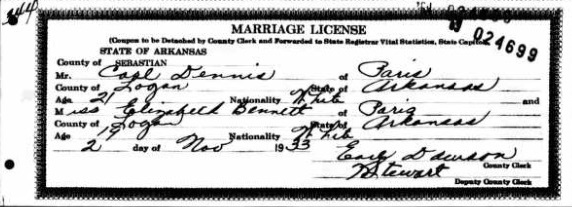 024699
MARRIAGE LICENSE
(Coupon to be Detached by County Clerk and Forwarded to State Registrar Vital Statistics, State Capitol)
STATE OF ARKANSAS
County of SEBASTIAN
Mr. Carl Dennis of Paris
County of Logan State of Arkansas
Age 21 Nationality White and
Miss Elizabeth Bennett of Paris
County of Logan State of Arkansas
Age 19 Nationality White
2 day of Nov 1933
Earl Dawson
County Clerk
Stewart
Deputy County Clerk